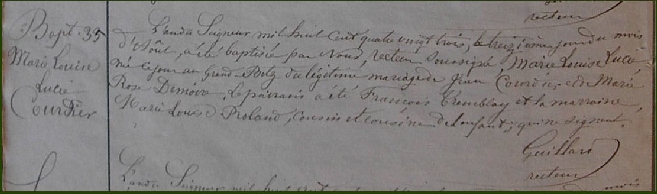 recteur
Bapt. 35
Marie Louise
Lucie
Courdier
L'an du Seigneur, mil huit cent quatre vingt trois, le treizième jour du mois
d'Août, a été baptisée par Nous, recteur soussigné, Marie Louise Lucie
née le jour au grand du légitime mariage de Jean et de Marie
Rose Le parrain a été François Tremblay et la marraine,
Marie Louise cousin et cousine de l'enfant, qui ne signent.
Guillard
recteur
L'an du Seigneur, mil huit cent mois